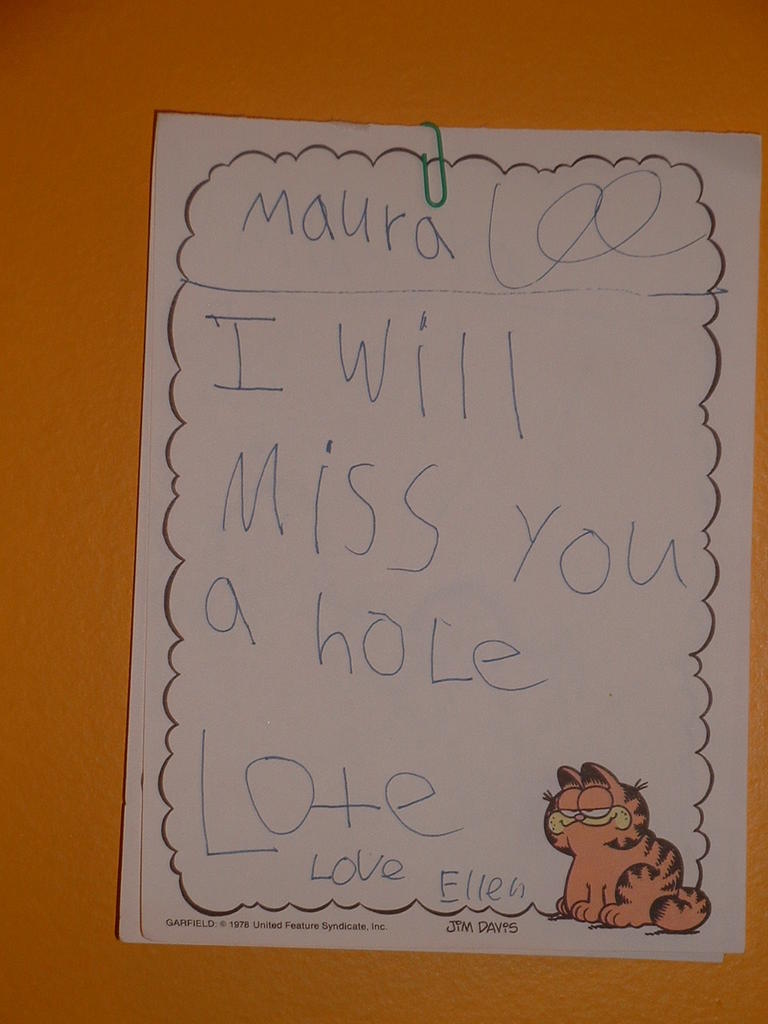 Maura Lee
I Will
Miss you
a hole
Lote
Love Ellen
GARFIELD: © 1978 United Feature Syndicate, Inc. JIM DAVIS